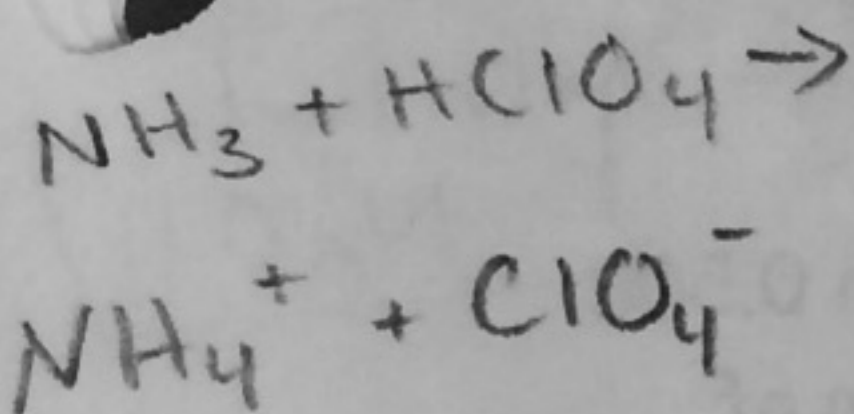 NH₃ + HClO₄ →
NH₄⁺ + ClO₄⁻